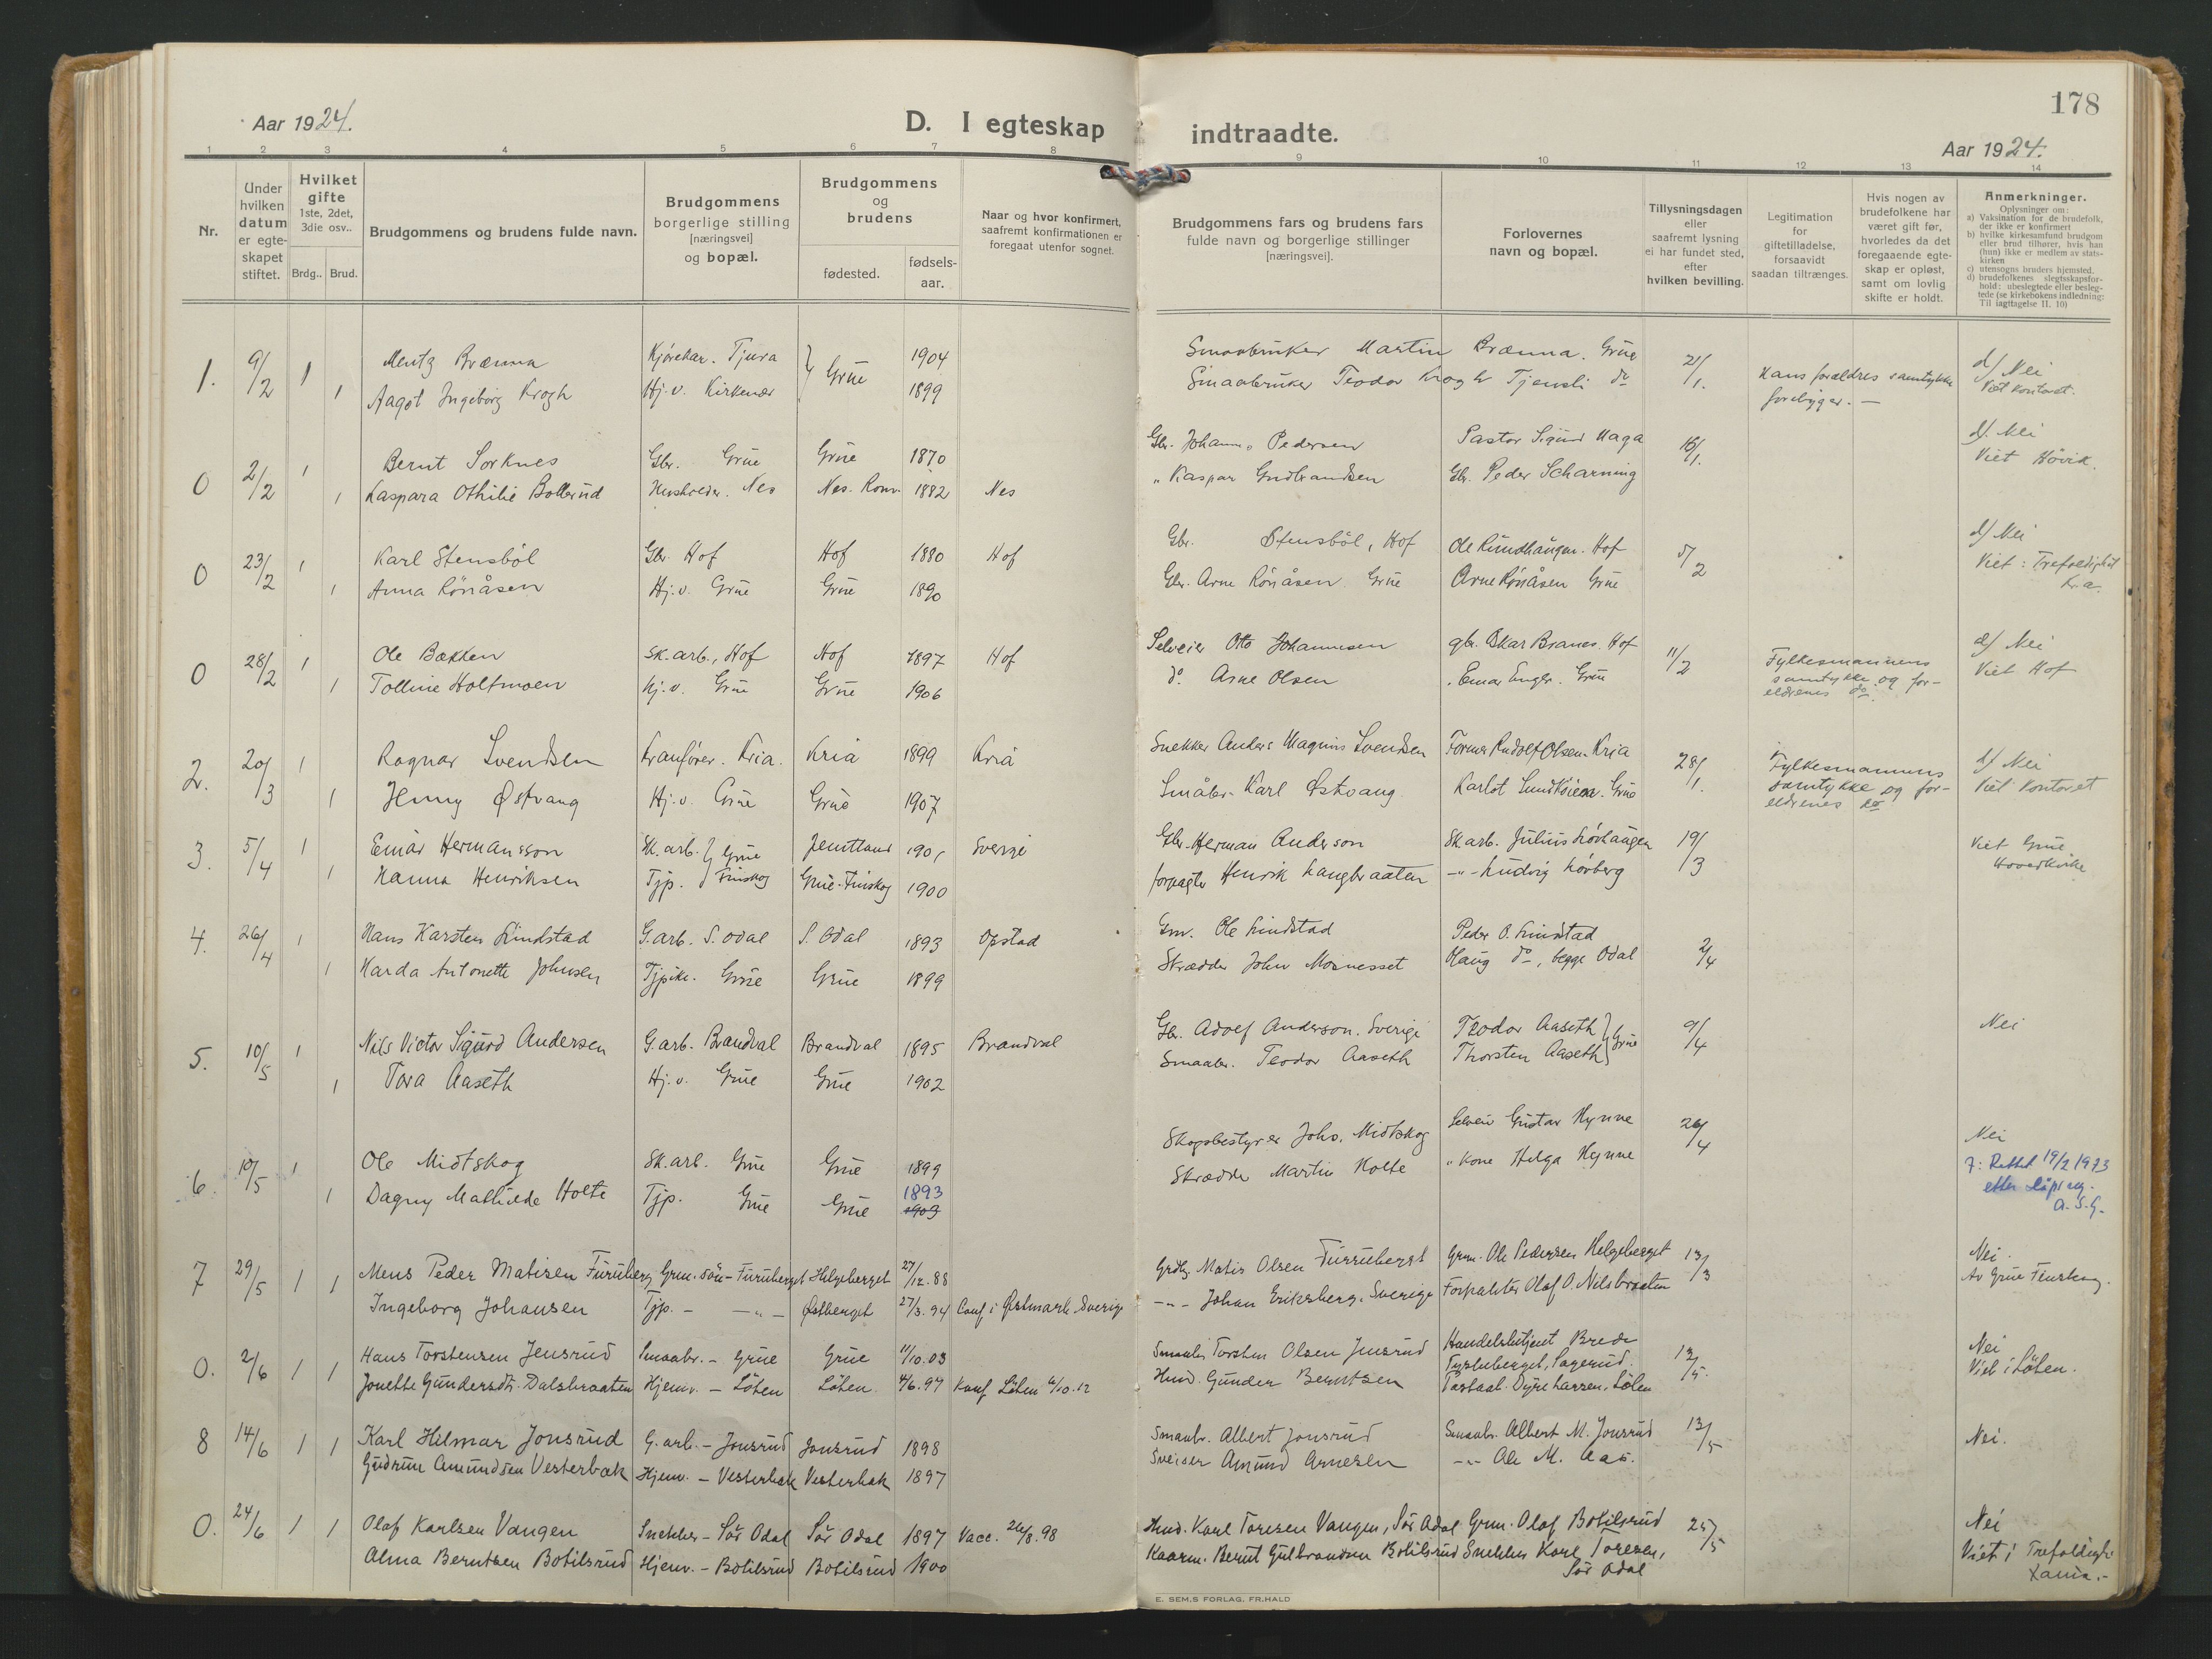 178
Aar 1924.
D. I egteskap indtraadte.
Aar 1924.
1 2 3 4 5 6 7 8 9 10 11 12 13 14
Nr.
Under hvilken datum er egteskapet stiftet.
Hvilket gifte 1ste, 2det, 3die osv..
Brdg.. Brud.
Brudgommens og brudens fulde navn.
Brudgommens borgerlige stilling [næringsvei] og bopæl.
Brudgommens og brudens
fødested. fødsels-aar.
Naar og hvor konfirmert, saafremt konfirmationen er foregaat utenfor sognet.
Brudgommens fars og brudens fars fulde navn og borgerlige stillinger [næringsvei].
Forlovernes navn og bopæl.
Tillysningsdagen eller saafremt lysning ei har fundet sted, efter hvilken bevilling.
Legitimation for giftetilladelse, forsaavidt saadan tiltrænges.
Hvis nogen av brudefolkene har været gift før, hvorledes da det foregaaende egteskap er opløst, samt om lovlig skifte er holdt.
Anmerkninger.
Oplysninger om:
a) Vaksination for de brudefolk, der ikke er konfirmert
b) hvilke kirkesamfund brudgom eller brud tilhører, hvis han (hun) ikke er medlem av statskirken
c) utensogns bruders hjemsted.
d) brudefolkenes slegtsskapsforhold: ubeslegtede eller beslegtede (se kirkebokens indledning: Til iagttagelse II. 10)
1. 9/2 1 Mentz Brænna Kjørekar. Tjura } Grue 1904 Smaabruker Martin Brænna. Grue 21/1. Hans forældres samtykke d/ Nei
1 Aagot Ingeborg Krogh Hj.v. Kirkenær 1899 Smaabruker Teodor Krogh Tjensli do foreligger. — Viet kontoret.
0 2/2 1 Bernt Sorknes Gbr. Grue Grue 1870 Gbr. Johanns Pedersen Pastor Sigurd Haga 16/1. d/. Nei
1 Kaspara Othilie Bollerud Nes 1882 Nes " Kaspar Gudbrandsen Gbr. Peder Scharning Viet Hövik.
0 23/2 1 Karl Stensböl Gbr Hof Hof 1880 Hof Gbr. Stensböl, Hof Ole Rundhaugen. Hof 5/2 d/ Nei
1 Anna Rönåsen Hj.v. Grue Grue 1890 Gbr. Arne Rönåsen Grue Arne Rönåsen Grue Viet: Trefoldighet Kra.
0 28/2 1 Ole Bakken Sk.arb., Hof Hof 1897 Hof Selveier Otto Johannesen gbr. Oskar Branes. Hof 11/2 Fylkesmannens d/ Nei
1 Tolline Holtmoen Hj.v. Grue Grue 1906 do. Arne Olsen " Einar Enger. Grue samtykke og for-eldrenes do. Viet Hof
2. 20/3 1 Ragnar Svendsen Kranfører. Kria. Kria 1899 Kria Snekker Anders Magnus Svendsen Former Rudolf Olsen. Kria 28/1. Fylkesmannens d/ Nei
1 Jenny Østvang Hj.v. Grue Grue 1907 Småbr. Karl Østvang Karlot Grue samtykke og for-eldrenes do Viet kontoret
3. 5/4 1 Einar Hermansson Sk.arb. } Grue Jemtland 1901 Sverige Gbr. Herman Anderson Sk.arb. Julius Lövhaugen 19/3 Viet Grue
1 Hanna Henriksen Tjp. } Finskog Grue-Finskog 1900 forpagter Henrik Langbraaten -"- Ludvig Lövberg Hovedkirke.
4. 26/4 1 Hans Karsten Lindstad G.arb. S. Odal S. Odal 1893 Opstad Gm. Ole Lindstad Peder O. Lindstad 2/4
1 Harda Antonette Johnsen Tjpike. Grue Grue 1899 Skrædder John Mosnesset Haug do, begge Odal
5. 10/5 1 Nils Victor Sigurd Andersen G.arb. Brandval Brandval 1895 Brandval Gb. Adolf Anderson. Sverige Teodor Aaseth } Grue 9/4 Nei
1 Tora Aaseth Hj.v. Grue Grue 1902 Smaabr. Teodor Aaseth Thorsten Aaseth
6. 10/5 1 Ole Midtskog Sk.arb. Grue Grue 1899 Skogsbestyrer Johs. Midtskog Selveier Gustav Hynne 26/4 Nei
1 Dagny Mathilde Holte Tjp. Grue Grue 1893 1903 Skrædder Martin Holte " Kone Helga Hynne 7: Rettet 19/2 1973
A.S.G.
7 29/5 1 1 Mens Peder Matisen Furuberg Grm. sön - Furuberget Helgeberget 27/12.88 Matis Olsen Furuberget Grm. Ole Pedersen Helgeberget 13/3 Nei.
Ingeborg Johansen Tjp. - -"- Östberget 27/3.94 Conf. i Östmark Sverige -"- Johan Eriksberg. Sverige Forpakter Olaf O. Nilsbraaten Av Grue Finskog.
0. 2/6 1 1 Hans Torstensen Jensrud Smaabr. - Grue Grue 11/10.03 Smaabr. Torsten Olsen Jensrud Handelsbetjent 13/5. Nei
Jonette Gundersdtr. Dalsbraaten Hjemv. - Löten Löten. 4/6.97 Konf Löten 6/10.12 Hmd. Gunder Berntsen Löten Viet i Löten.
8 14/6 1 1 Karl Hilmar Jonsrud G.arb. - Jonsrud Jonsrud 1898 Smaabr. Albert Jonsrud Smaabr. Albert M. Jonsrud 13/5 Nei.
Gudrun Amundsen Vesterbak Hjemv. - Vesterbak Vesterbak 1897 Sveiser Amund Arnesen -"- Ole M. Aas.
0. 24/6 1 1 Olaf Karlsen Vangen Snekker - Sör Odal Sör Odal 1897 Vacc. 26/8.98 Hmd. Karl Toresen Vangen, Sör Odal Grm. Olaf Botilsrud 25/5 Nei
Alma Berntsen Botilsrud Hjemv. - Botilsrud Botilsrud 1900 Kaarm. Bernt Gulbrandsen Botilsrud Snekker Karl Toresen, Sör Odal Viet i Trefoldigh. Xania.-
E. SEM.S FORLAG, FR.HALD